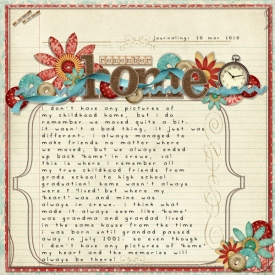 journaling: 30 mar 2010
remember
home
i don't have any pictures of
my childhood home, but i do
remember we moved quite a bit.
it wasn't a bad thing, it just was
different. i always managed to
make friends no matter where
we moved, but we always ended
up back 'home' in crews, va!
this is where i remember all
my true childhood friends from
grade school to high school
graduation! home wasn't always
were i "lived" but where my
'heart' was and mine was
always in crews. i think what
made it always seem like 'home'
was grandma and grandad lived
in the same house from the time
i was born until grandad passed
away in july 2001. so even though
i don't have any pictures of 'home'
my heart and the memories will
always be there!